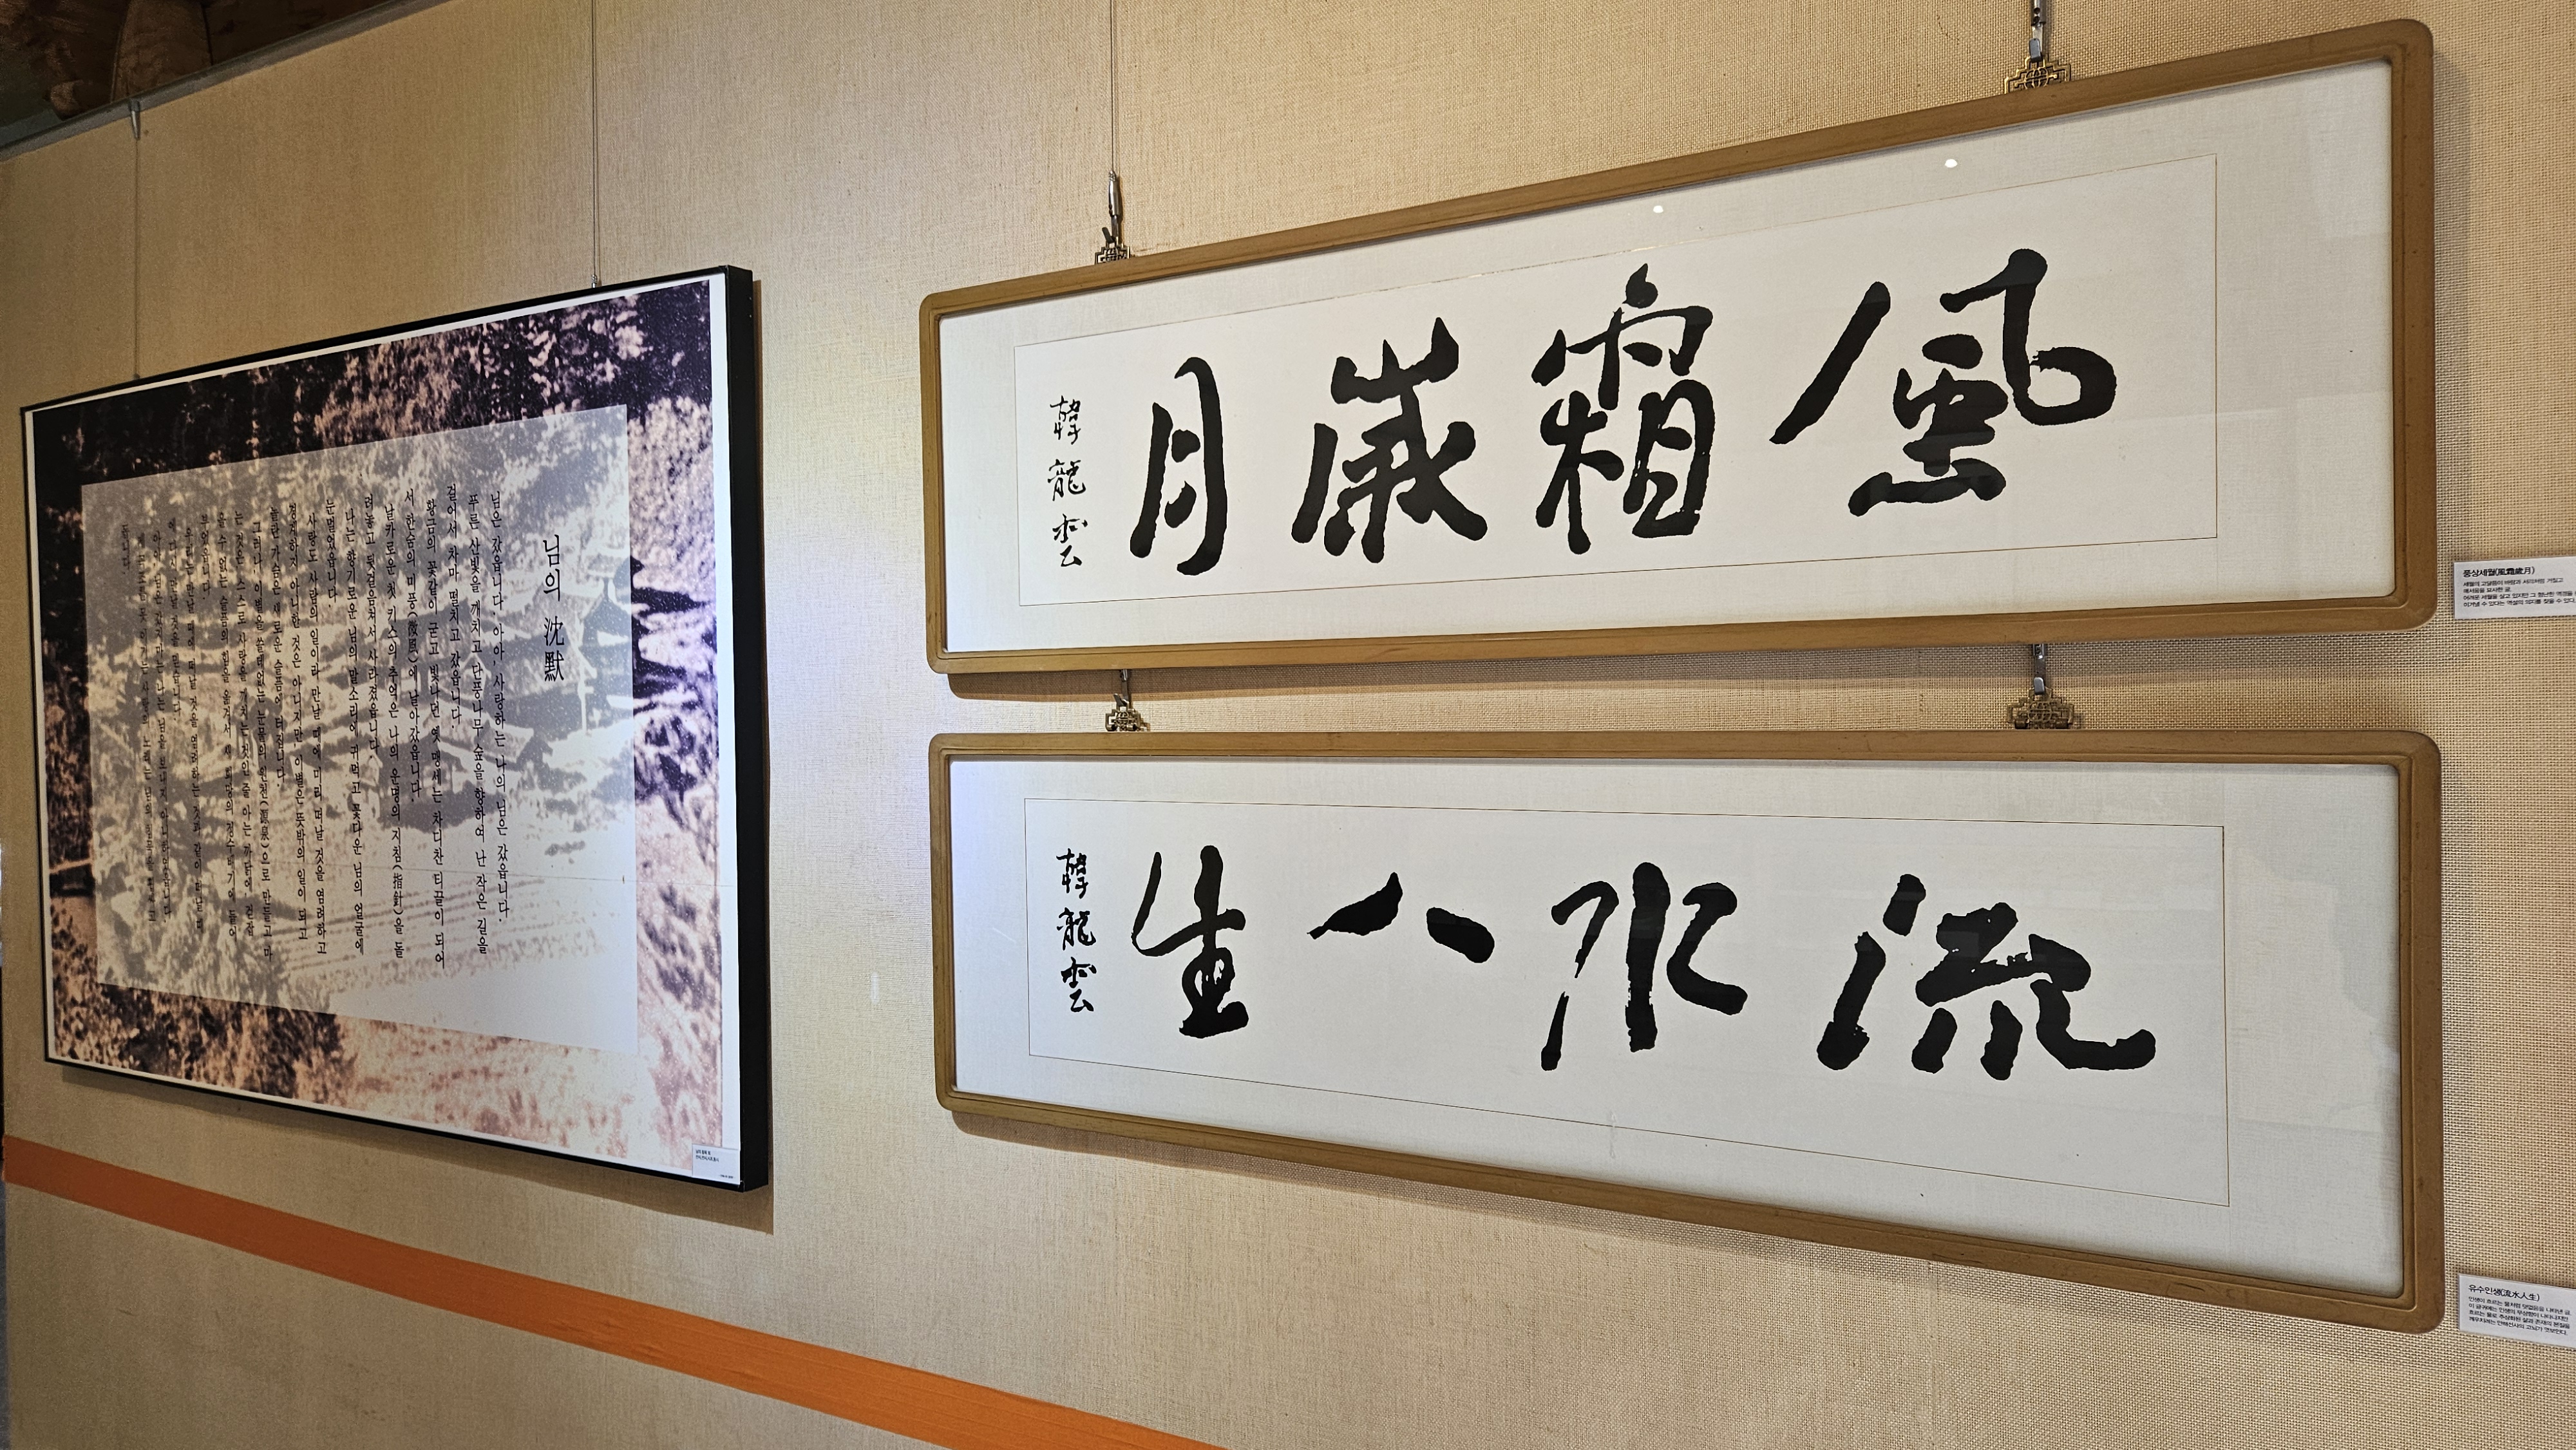 님의 沈默
님은 갔읍니다. 아아, 사랑하는 나의 님은 갔읍니다.
푸른 산빛을 깨치고 단풍나무 숲을 향하여 난 작은 길을
걸어서 차마 떨치고 갔읍니다.
황금의 꽃같이 굳고 빛나던 옛 맹세는 차디찬 티끌이 되어
서 한숨의 미풍(微風)에 날아갔읍니다.
날카로운 첫 키스의 추억은 나의 운명의 지침(指針)을 돌
려놓고 뒷걸음쳐서 사라졌읍니다.
나는 향기로운 님의 말소리에 귀먹고 꽃다운 님의 얼굴에
눈멀었읍니다.
사랑도 사람의 일이라 만날 때에 미리 떠날 것을 염려하고
경계하지 아니한 것은 아니지만, 이별은 뜻밖의 일이 되고
놀란 가슴은 새로운 슬픔에 터집니다.
그러나 이별을 쓸데없는 눈물의 원천(源泉)으로 만들고 마
는 것은 스스로 사랑을 깨치는 것인 줄 아는 까닭에, 걷잡
을 수 없는 슬픔의 힘을 옮겨서 새 희망의 정수박이에 들어
부었읍니다.
우리는 만날 때에 떠날 것을 염려하는 것과 같이 떠날 때
에 다시 만날 것을 믿습니다.
아아 님은 갔지마는 나는 님을 보내지 아니하였읍니다.
제 곡조를 못 이기는 사랑의 노래는 님의
돕니다.
風霜歲月
韓龍雲
풍상세월(風霜歲月)
流水人生
韓龍雲
유수인생(流水人生)